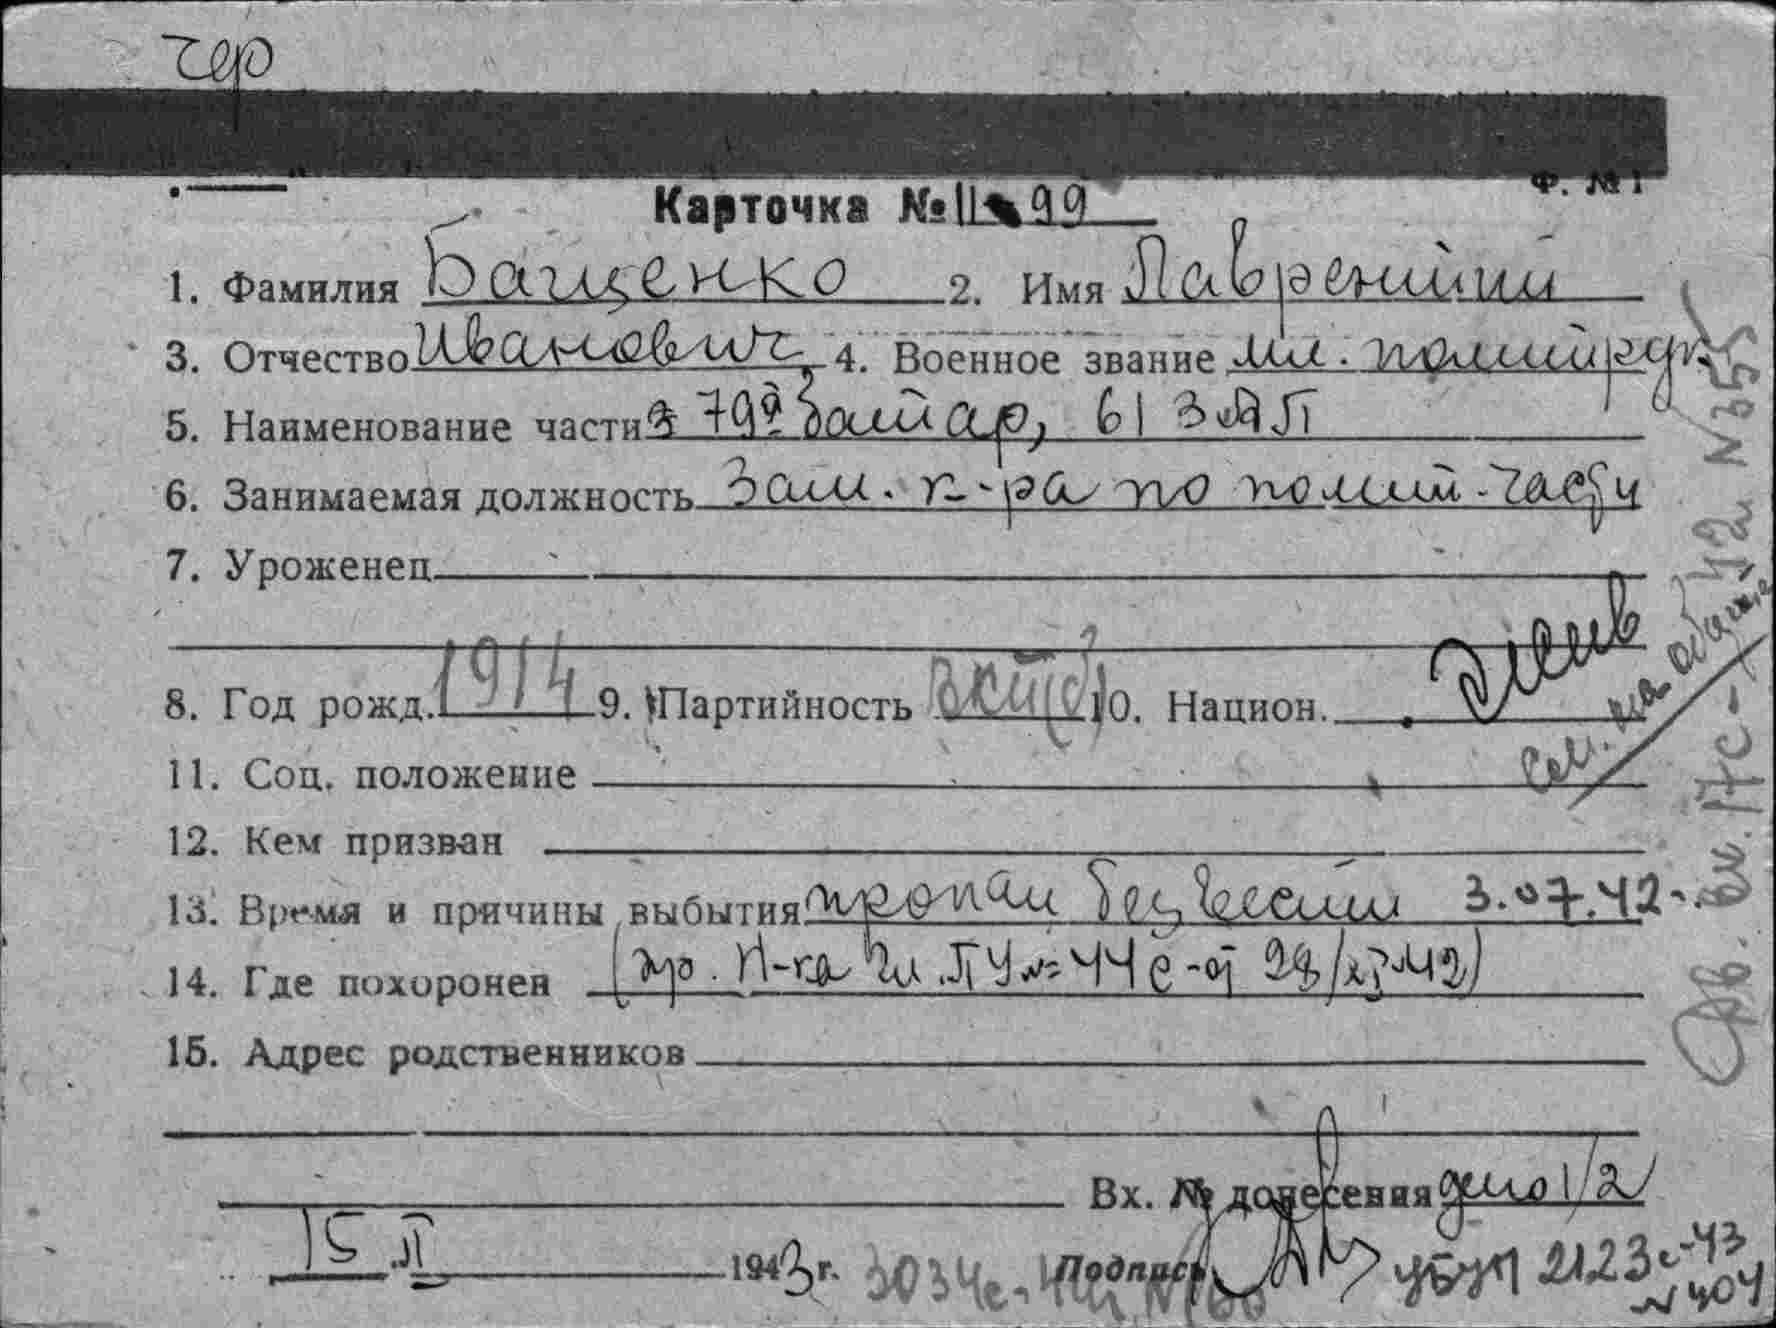 чер
Ф. №1
Карточка № 11 99
1. Фамилия Бащенко 2. Имя Лаврентий
3. Отчество Иванович 4. Военное звание мл. политрук
5. Наименование части 79й батар, 61 ЗАП
6. Занимаемая должность Зам. к-ра по полит-части
7. Уроженец
8. Год рожд. 1914 9. Партийность 10. Национ.
11. Соц. положение
12. Кем призван
13. Время и причины выбытия пропал без вести 3.07.42
14. Где похоронен (пр. Н-ка Гл. ПУ № 44с-от 28/XI-42)
15. Адрес родственников
Вх. № донесения дело 1/2
15.II 1943 г. 3034с Подпись 2123с-43
№ 404